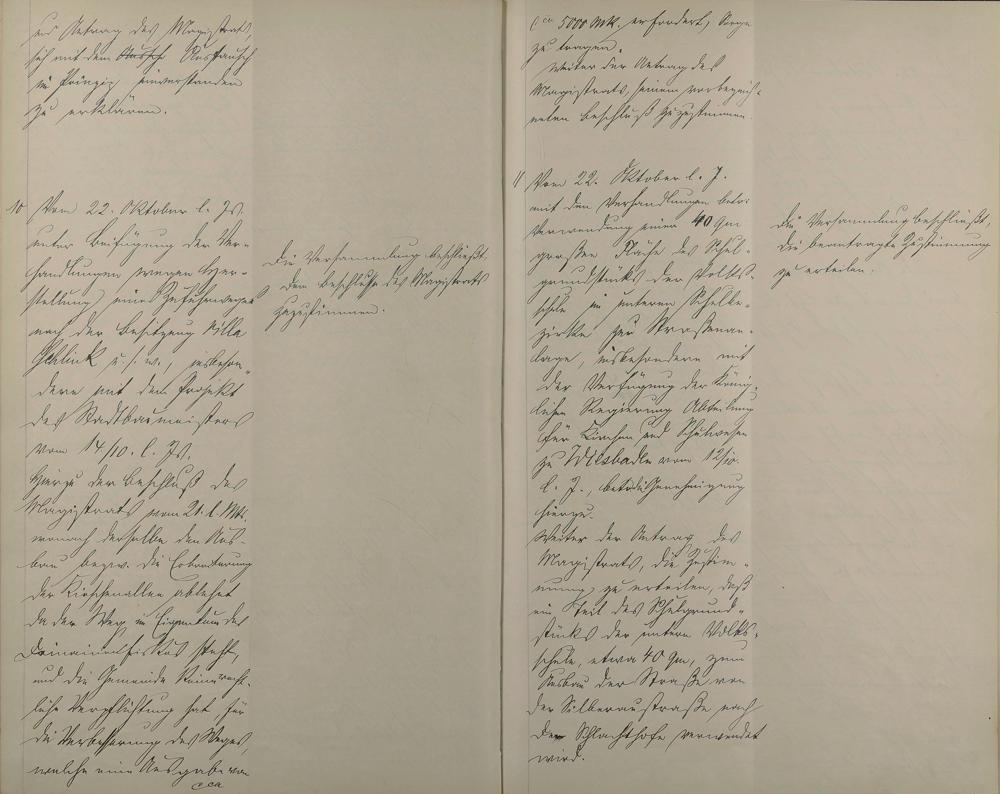 der Antrag des Magistrats,
sich mit dem Austausch
im Prinzip einverstanden
zu erklären.
10 Vom 22. Oktober l. Js.
unter Beifügung der Ver-
handlungen wegen Her-
stellung eines Zufuhrweges
nach der Besitzung Villa
Schlink u. s. w., insbeson-
dere mit dem Projekt
des Stadtbaumeisters
vom 14/10. l. Js.
Hierzu der Beschluß des
Magistrats vom 21. l. Mts.
wonach derselbe den Aus-
bau bezw. die Verbesserung
der Kirschenallee ablehnt
da der Weg im Eigentum des
Domainenfiskus steht,
und die Gemeinde keine recht-
liche Verpflichtung hat für
die Verbesserung des Weges,
welche eine Ausgabe von
cca
Die Versammlung beschließt,
dem Beschlusse des Magistrats
zuzustimmen.
cca 5000 Mk. erfordert, Sorge
zu tragen.
Weiter der Antrag des
Magistrats, seinem vorbezeich-
neten Beschluß zuzustimmen.
11 Vom 22. Oktober l. J.
mit den Verhandlungen betr:
Verwendung einer 40 qm
großen Fläche des Schul-
grundstücks der Volks-
schule im unteren Schulbe-
zirke zur Straßenan-
lage, insbesondere mit
der Verfügung der König-
lichen Regierung Abteilung
für Kirchen und Schulwesen
zu Wiesbaden vom 12/10.
l. J., betr. die Genehmigung
hierzu.
Weiter der Antrag des
Magistrats, die Zustim-
mung zu erteilen, daß
ein Teil des Schulgrund-
stücks der untern Volks-
schule, etwa 40 qm, zum
Ausbau der Straße von
der Silberaustraße nach
dem Schlachthofe verwendet
wird.
Die Versammlung beschließt,
die beantragte Zustimmung
zu erteilen.